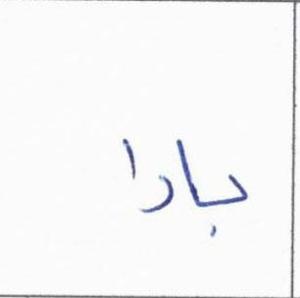 بارا